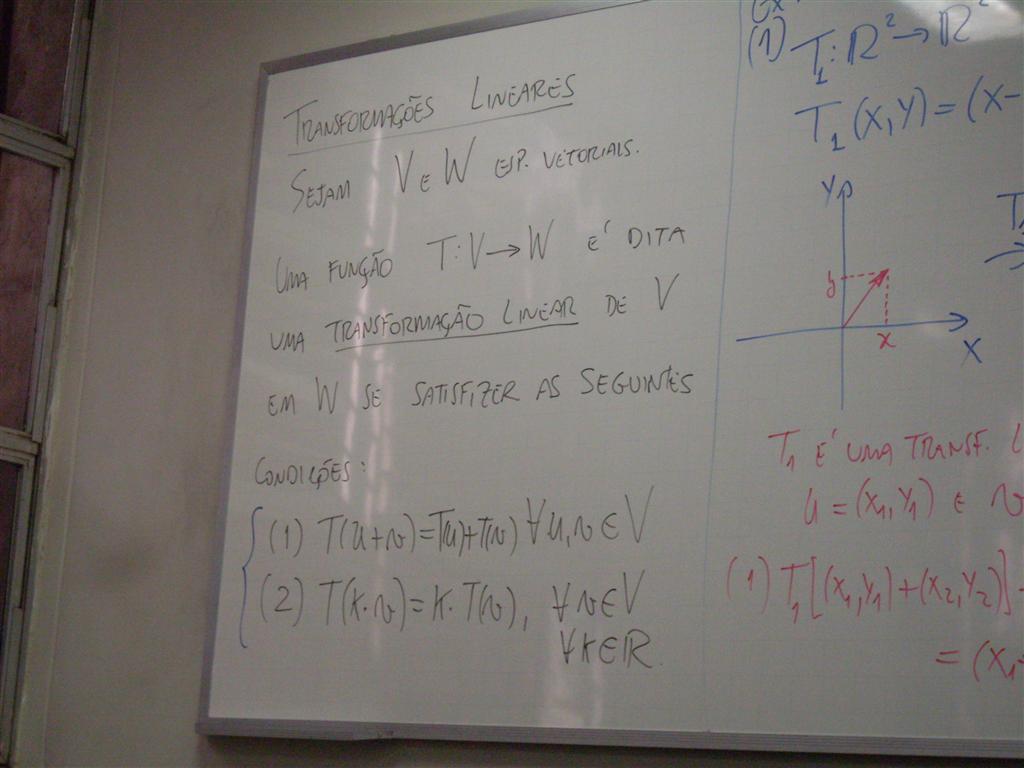 TRANSFORMAÇÕES LINEARES
SEJAM V E W ESP. VETORIAIS.
UMA FUNÇÃO T: V → W É DITA
UMA TRANSFORMAÇÃO LINEAR DE V
EM W SE SATISFIZER AS SEGUINTES
CONDIÇÕES:
(1) T(u+v)=T(u)+T(v) ∀u,v ∈ V
(2) T(k.v)=k.T(v), ∀v∈V
∀k∈ℝ.
Ex
(1) T₁: ℝ² → ℝ²
T₁(X,Y) = (X-
Y
y
x
X
T₁ É UMA TRANSF. L
u = (X₁,Y₁) E v
(1) T₁[(X₁,Y₁)+(X₂,Y₂)]
= (X₁